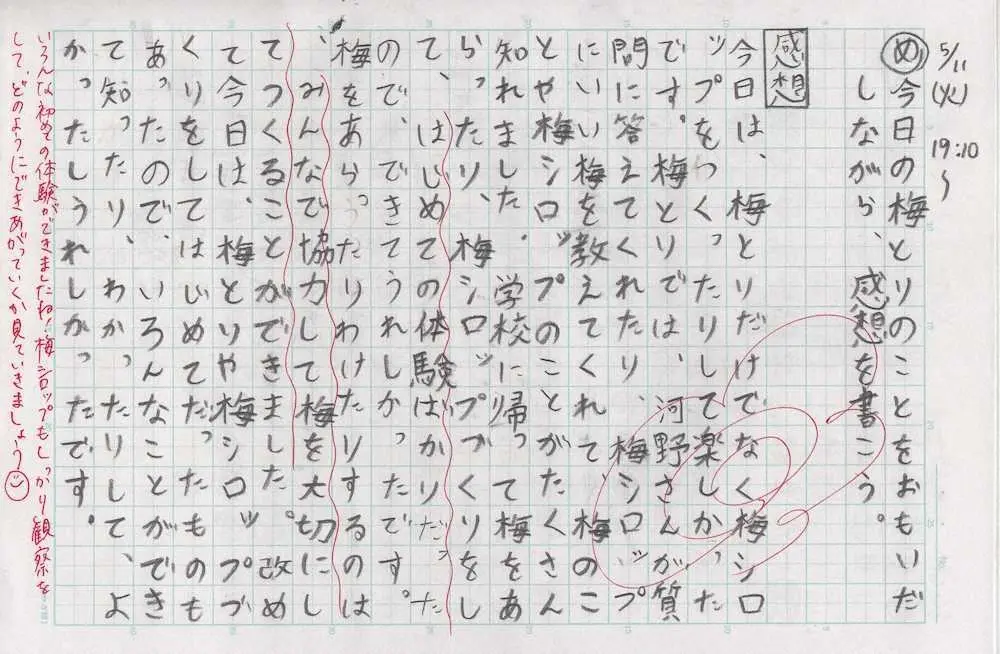 5/11(火) 19:10〜
め今日の梅とりのことをおもいだ
しながら、感想を書こう。
感想
今日は、梅とりだけでなく梅シロ
ップをつくったりして楽しかった
です。梅とりでは、河野さんが質
問に答えてくれたり、梅シロップ
にいい梅を教えてくれて梅のこ
とや梅シロップのことがたくさん
知れました。学校に帰って梅をあ
らったり、梅シロップづくりをし
て、はじめての体験ばかりだった
ので、できてうれしかったです。
梅をあらったりわけたりするのは
、みんなで協力して梅を大切にし
てつくることができました。改め
て今日は、梅とりや梅シロップづ
くりをしてはじめてだったものも
あったので、いろんなことができ
て知ったり、わかったりして、よ
かったしうれしかったです。
いろんな初めての体験ができましたね!梅シロップもしっかり観察を
して、どのようにできあがっていくか見ていきましょう